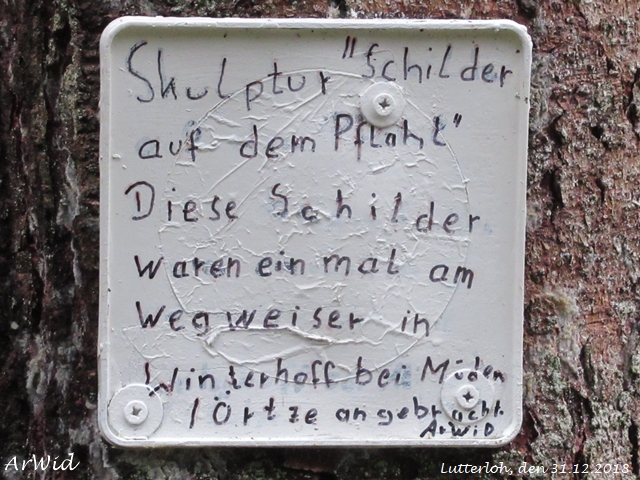 Skulptur "Schilder
auf dem Pflahl"
Diese Schilder
waren ein mal am
Wegweiser in
Winterhoff bei Müden
/Örtze angebracht.
ArWiD
ArWid
Lutterloh, den 31.12.2018